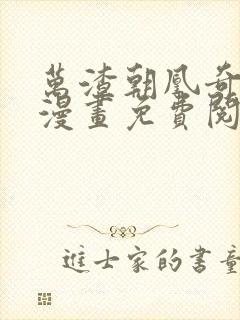 萬渣朝凰奇
漫畫免費閱
進士家的書童